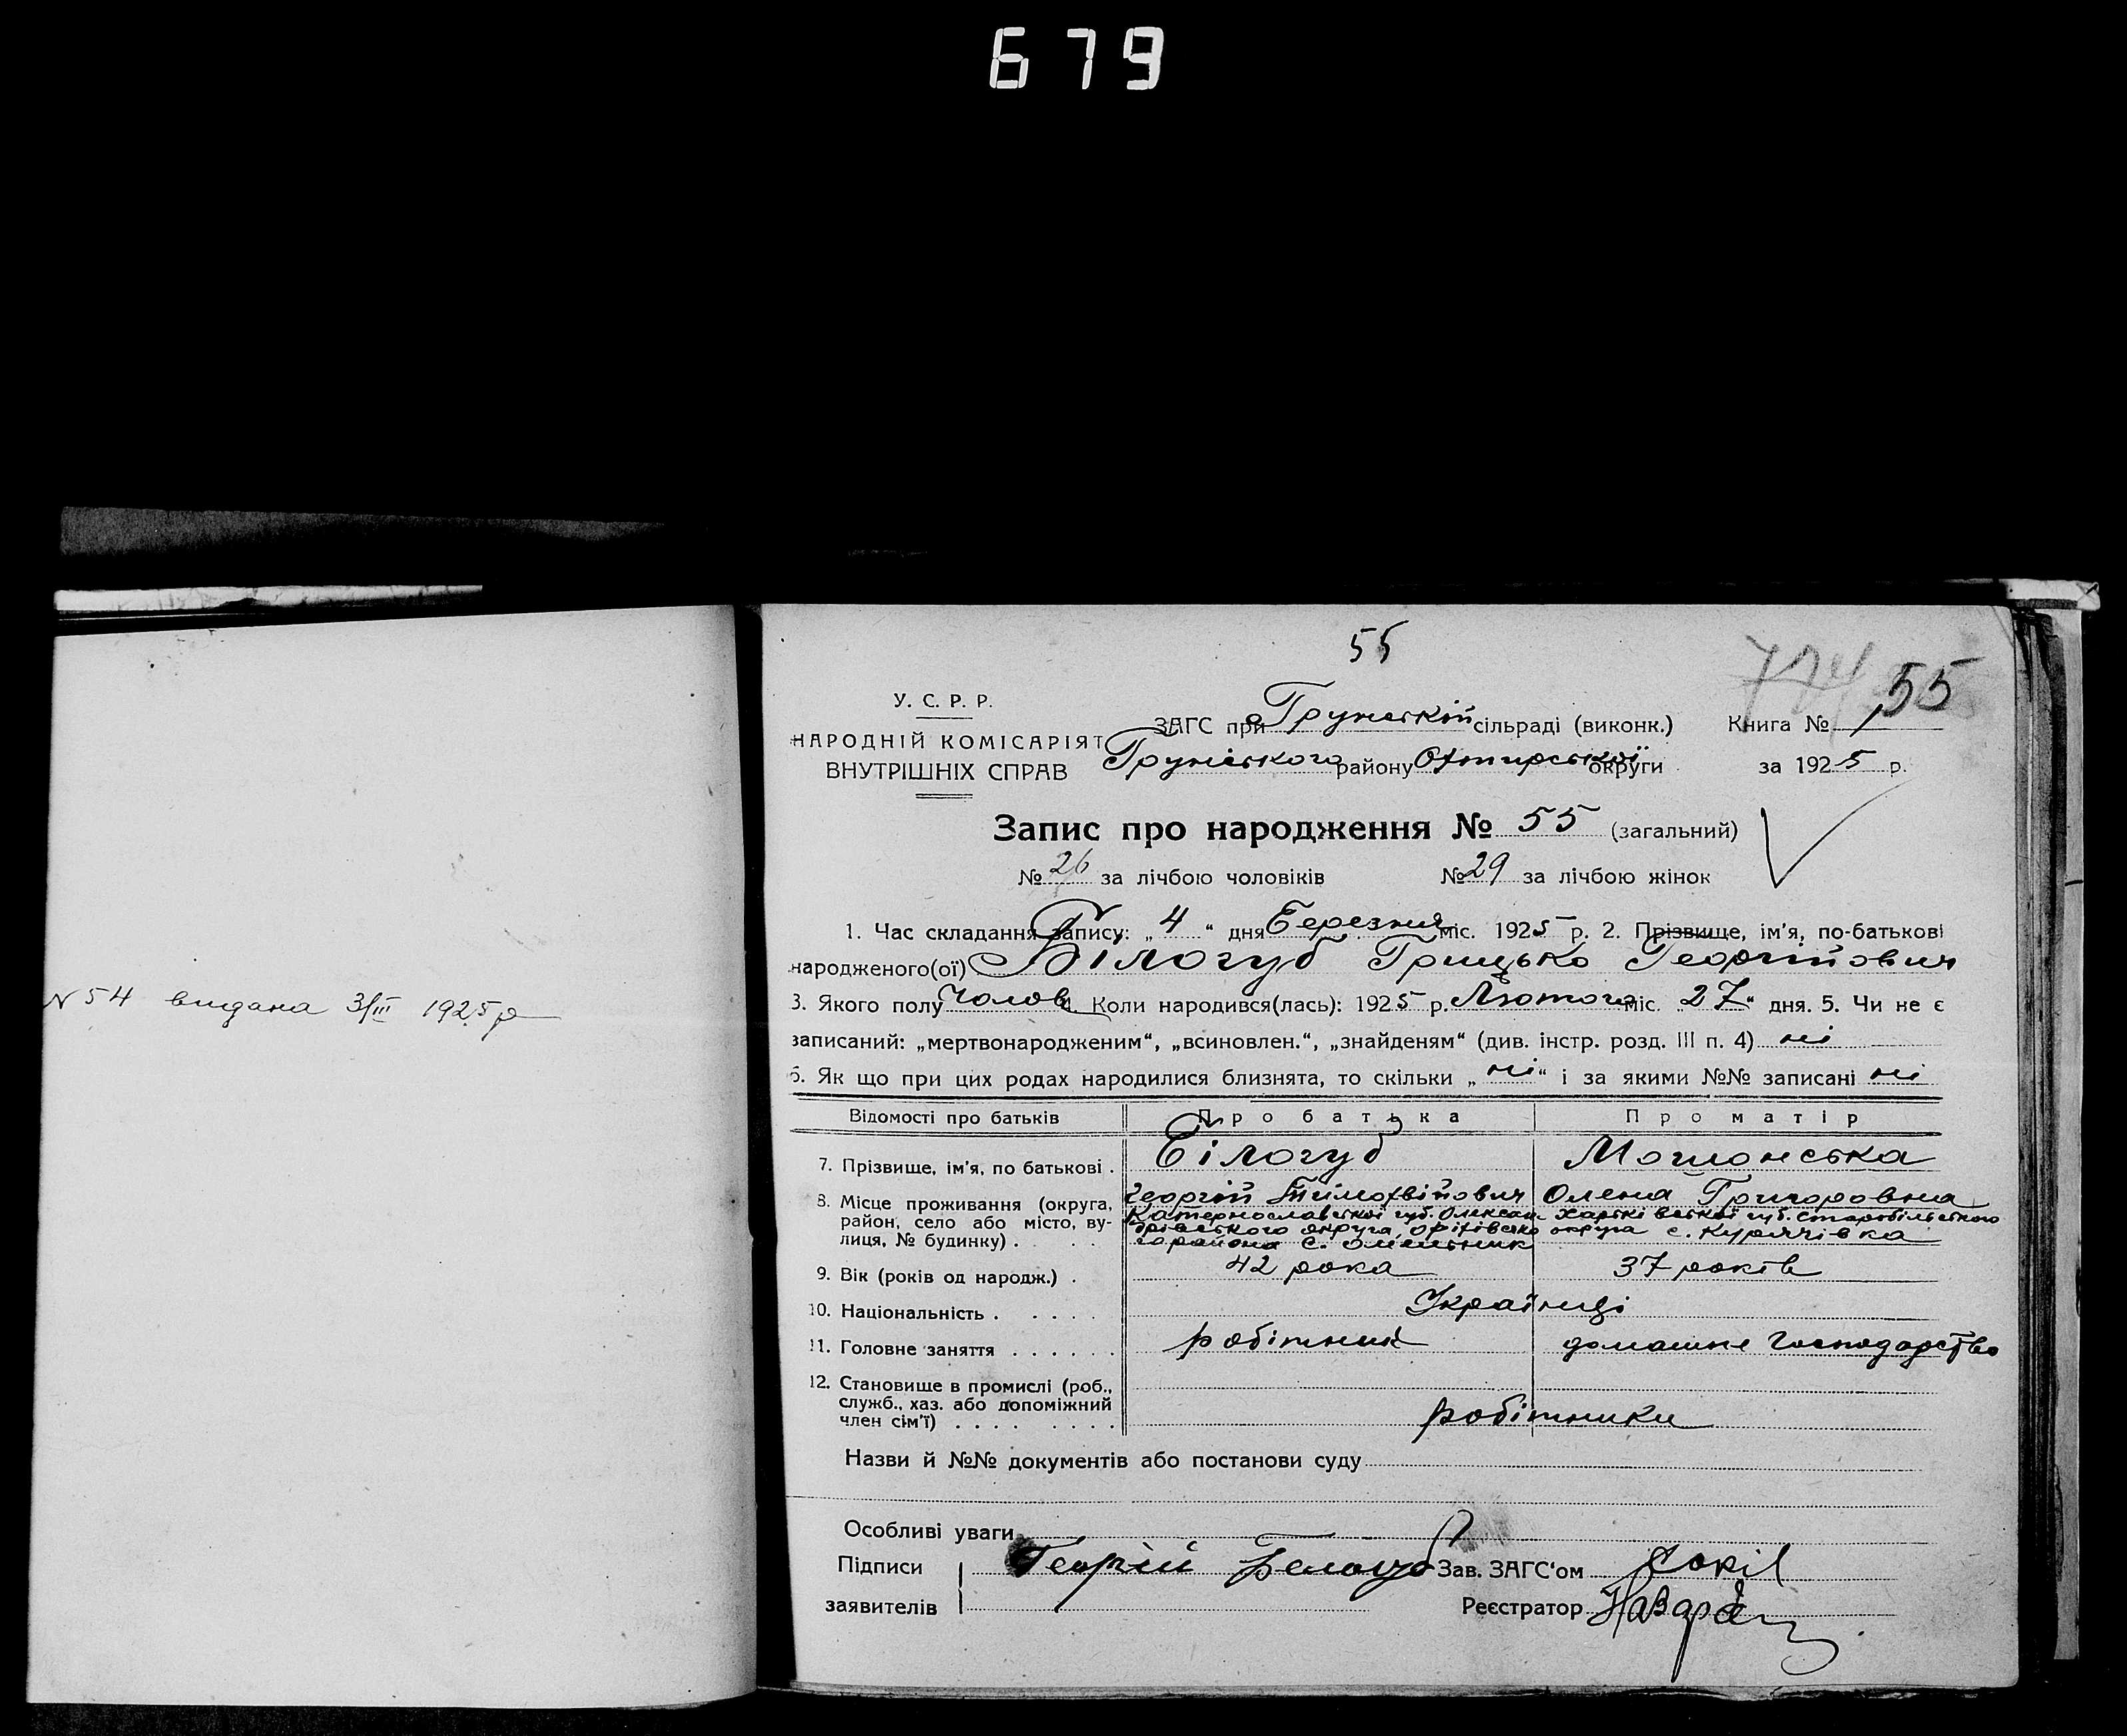 679
55
774 55
У. С. Р. Р.
НАРОДНІЙ КОМІСАРІЯТ
ВНУТРІШНІХ СПРАВ
ЗАГС при Грунській сільраді (виконк.) Книга № 1
Грунського району Охтирської округи за 1925 р.
Запис про народження № 55 (загальний)
№ 26 за лічбою чоловіків № 29 за лічбою жінок
1. Час складання запису: „4“ дня Березня міс. 1925 р. 2. Прізвище, ім’я, по-батькові
народженого(ої) Білогуб Грицько Георгійович
3. Якого полу Чолов. 4. Коли народився(лась): 1925 р. Лютого міс. „27“ дня. 5. Чи не є
записаний: „мертвонародженим“, „всиновлен.“, „знайденям“ (див. інстр. розд. III п. 4) ні
6. Як що при цих родах народилися близнята, то скільки „ні“ і за якими №№ записані ні
Відомості про батьків Про батька Про матір
7. Прізвище, ім’я, по батькові . Білогуб Могилонська
Георгій Тимофвійович Олена Григоровна
8. Місце проживання (округа, район, село або місто, вулиця, № будинку) .
Катернославської губ. Олексан- Харківської губ. Старобільського
дрівського округа, Оріхівсько округа с. Курячівка
го района с. Омельник
9. Вік (років од народж.) . 42 рока 37 років
10. Національність . Українці
11. Головне заняття . . . . . . робітник домашне господарство
12. Становище в промислі (роб., служб., хаз. або допоміжний член сім’ї) . . . . робітники
Назви й №№ документів або постанови суду
Особливі уваги
Підписи Георгій Белогуб Зав. ЗАГС‘ом Сокіл
заявителів Реєстратор
N 54 видана 3/III 1925 р